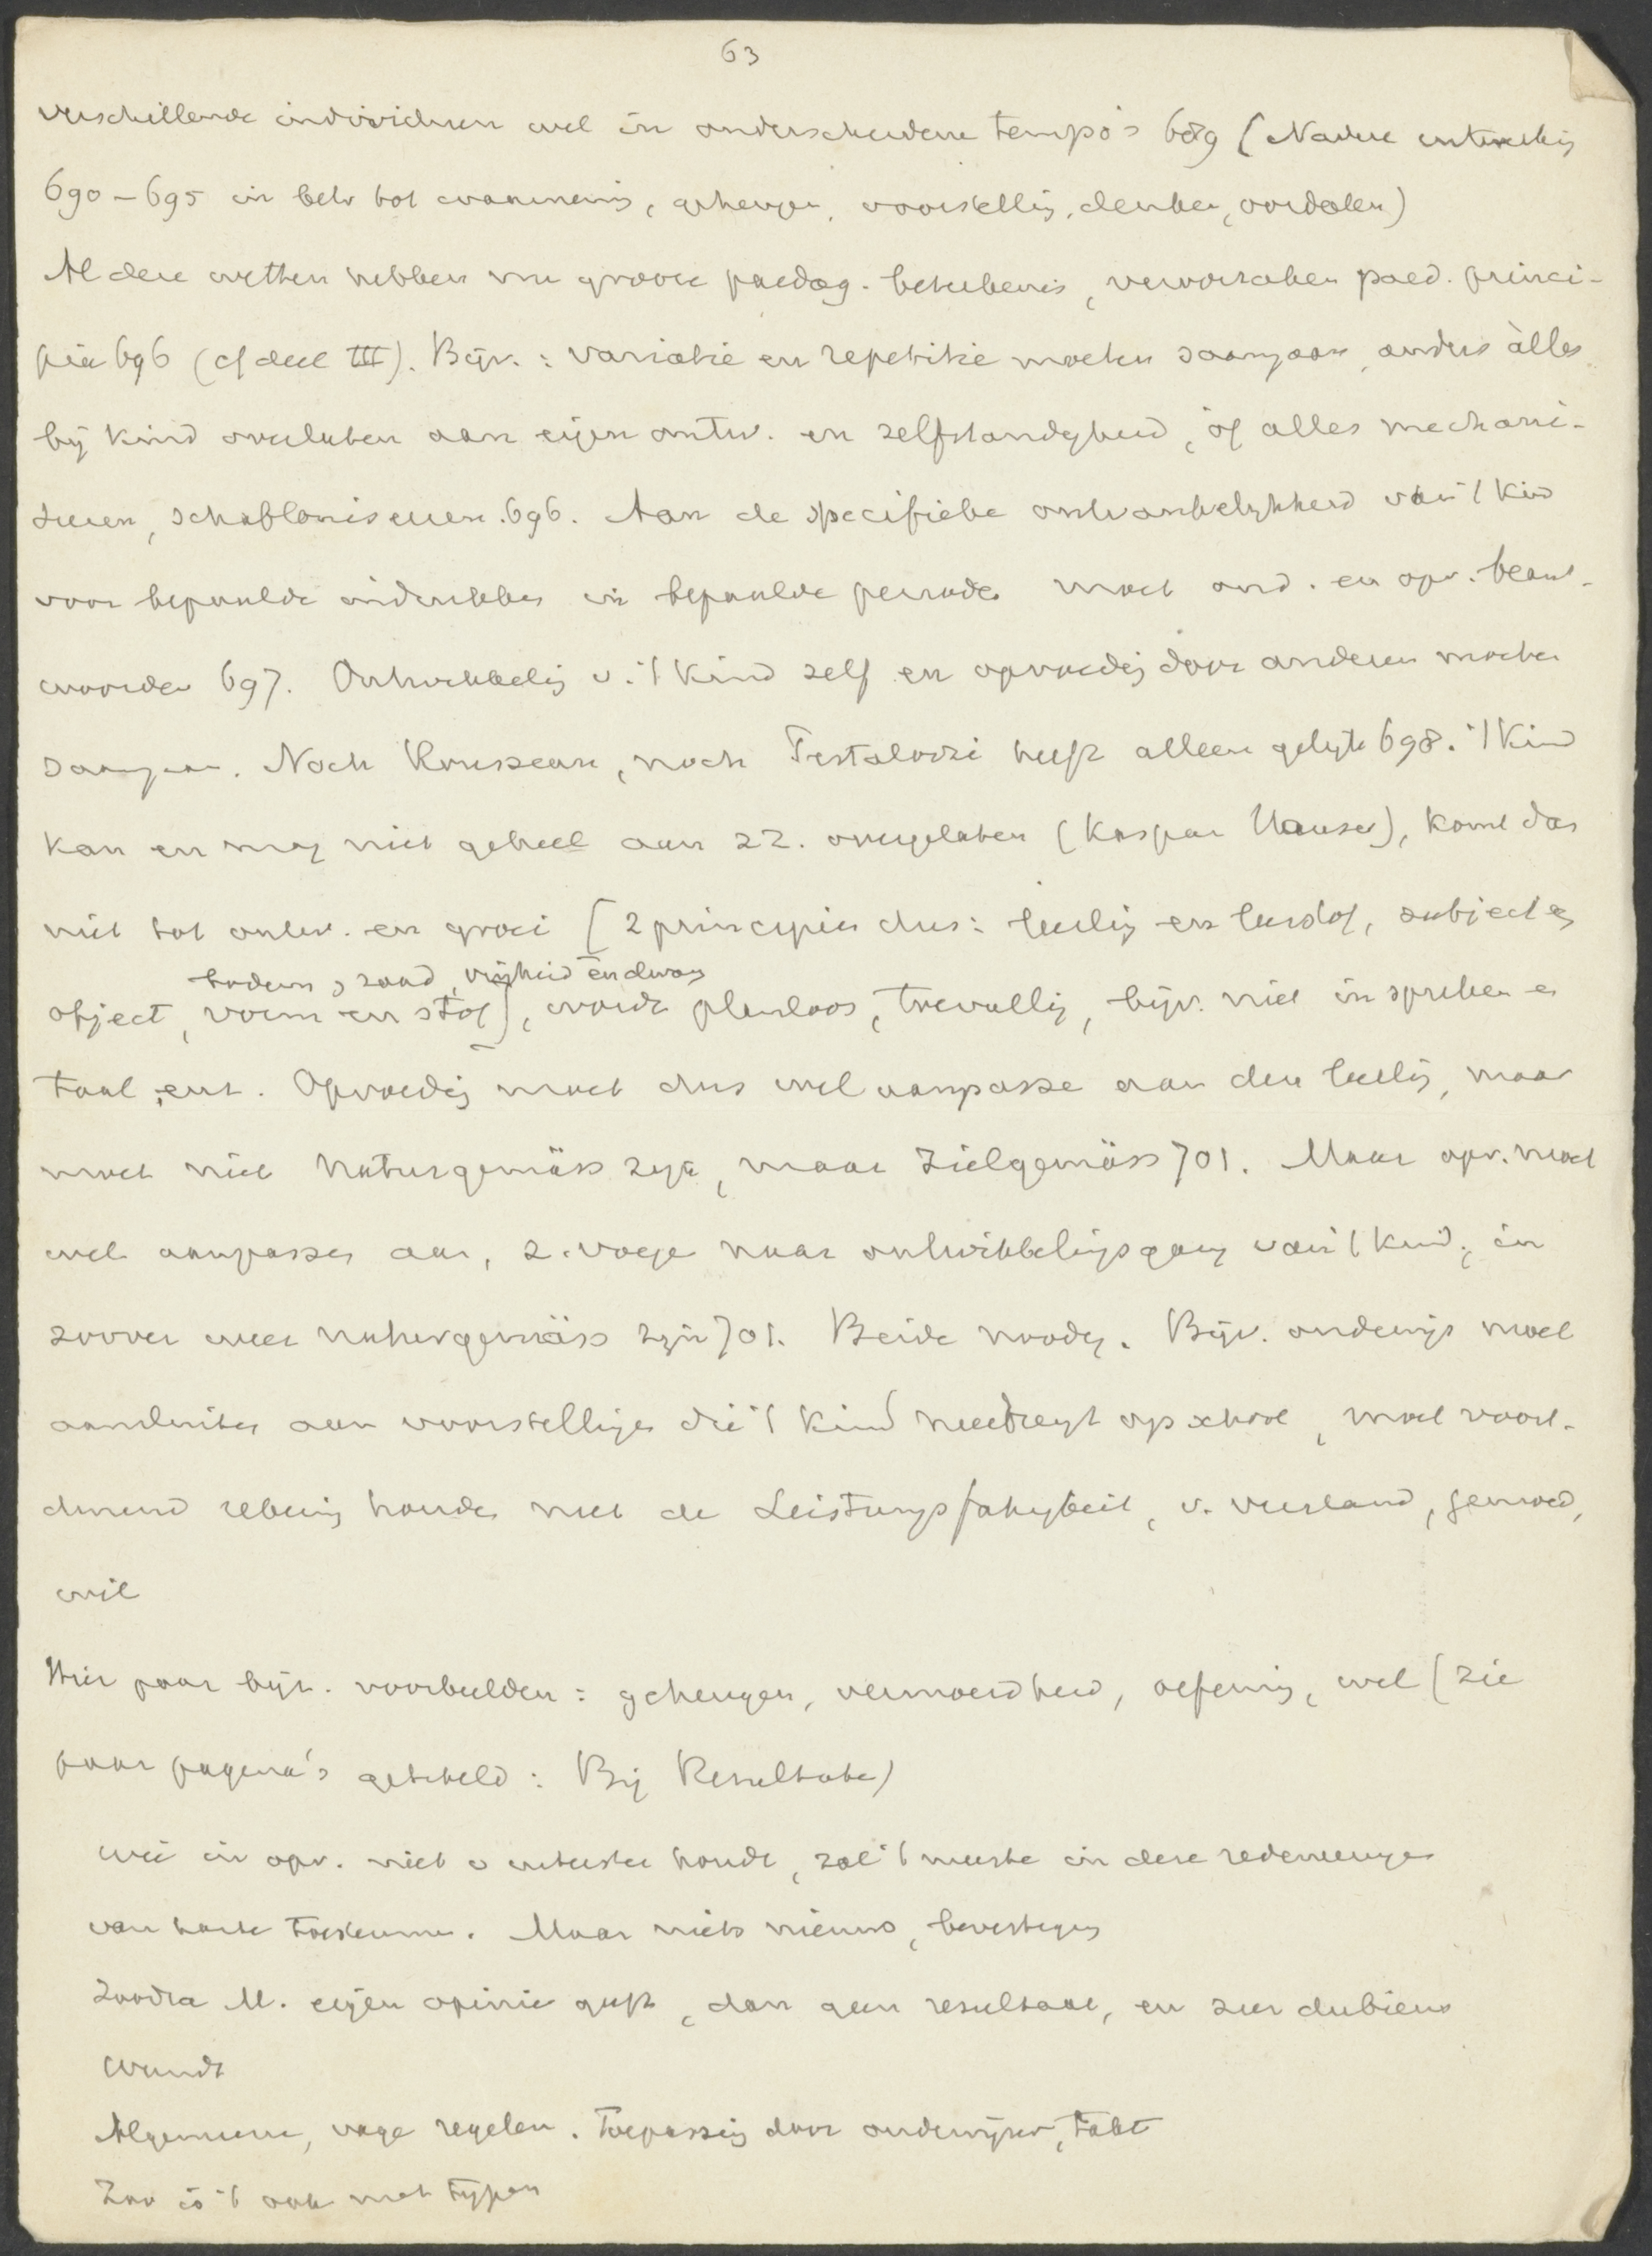 63
verschillende individuen wel in onderscheidene tempo's 689 (Nadere ontwikkelig
690-695 in betr tot waarnemig, geheugen, voorstellig, denken, oordelen)
Al deze wetten hebben nu groote paedag. beteekenis, veroorzaken paed. princi-
pia 696 (cf deel III). Bijv.: variatie en repetitie moeten saamgaan, anders àlles
bij kind overlaten aan eigen ontw. en zelfstandigheid, òf alles mechani-
seeren, schabloniseeren. 696. Aan de specifieke ontvankelijkheid van 't kind
voor bepaalde indrukken in bepaalde periode moet ond. en opv. beant-
woorden 697. Ontwikkelig v. 't kind zelf en opvoedig door anderen moeten
saamgaan. Noch Rousseau, noch Pestalozzi heeft alleen gelijk 698. 't Kind
kan en mag niet geheel aan zz. overgelaten (Kaspar Hauser), komt dan
niet tot ontw. en groei [2 principien dus: leerlig en leerstof, subject en
bodem & zaad, vrijheid en dwang
object, vorm en stof], wordt planloos, toevallig, bijv. niet in spreken en
taal, enz. Opvoedig moet dus wel aanpassen aan den leerlig, maar
moet niet Naturgemäss zijn, maar Zielgemäss 701. Maar opv. moet
wel aanpassen aan, z. voegen naar ontwikkeligsgang van 't kind, in
zoover weer naturgemäss zijn 701. Beide noodig. Bijv. onderwijs moet
aansluiten aan voorstelligen die 't kind meebrengt op school, moet voort-
durend rekenig houden met de Leistungsfähigkeit, v. verstand, gemoed,
wil
Hier paar bijz. voorbeelden: geheugen, vermoeidheid, oefenig, wel (zie
paar pagina's getiteld: Bij Resultaten)
Wie in opv. niet v uitersten houdt, zal 't meeste in deze redeneerigen
van harte toestemmen. Maar niets nieuws, bevestigig
Zoodra M. eigen opinie geeft, dan geen resultaat, en zeer dubieus
Wundt
Algemeene, vage regelen. Toepassig door onderwijzer, takt
Zoo is 't ook met typen